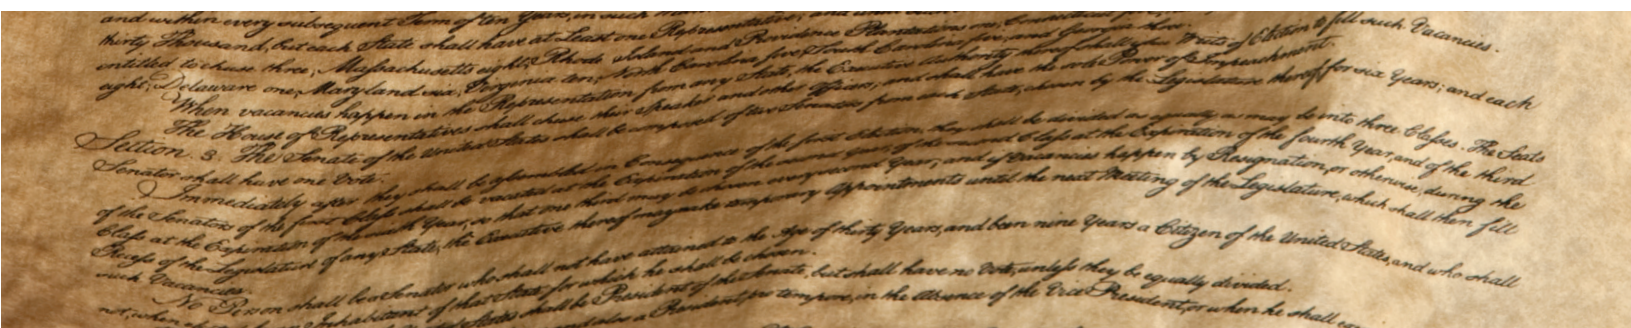 and within every subsequent Term of ten Years, in such
thirty Thousand, but each State shall have at Least one Representative; and until
entitled to chuse three, Massachusetts eight, Rhode Island and Providence Plantations one, Connecticut five,
eight, Delaware one, Maryland six, Virginia ten, North Carolina five, South Carolina five, and Georgia three.
When vacancies happen in the Representation from any State, the Executive Authority thereof shall issue Writs of Election to fill such Vacancies.
The House of Representatives shall chuse their Speaker and other Officers; and shall have the sole Power of Impeachment.
Section. 3. The Senate of the United States shall be composed of two Senators from each State, chosen by the Legislature thereof, for six Years; and each
Senator shall have one Vote.
Immediately after they shall be assembled in Consequence of the first Election, they shall be divided as equally as may be into three Classes. The Seats
of the Senators of the first Class shall be vacated at the Expiration of the second Year, of the second Class at the Expiration of the fourth Year, and of the third
Class at the Expiration of the sixth Year, so that one third may be chosen every second Year; and if Vacancies happen by Resignation, or otherwise, during the
Recess of the Legislature of any State, the Executive thereof may make temporary Appointments until the next Meeting of the Legislature, which shall then fill
such Vacancies.
No Person shall be a Senator who shall not have attained to the Age of thirty Years, and been nine Years a Citizen of the United States, and who shall
not, when Inhabitant of that State for which he shall be chosen.
States shall be President of the Senate, but shall have no Vote, unless they be equally divided.
and also a President pro tempore, in the Absence of the Vice President, or when he shall